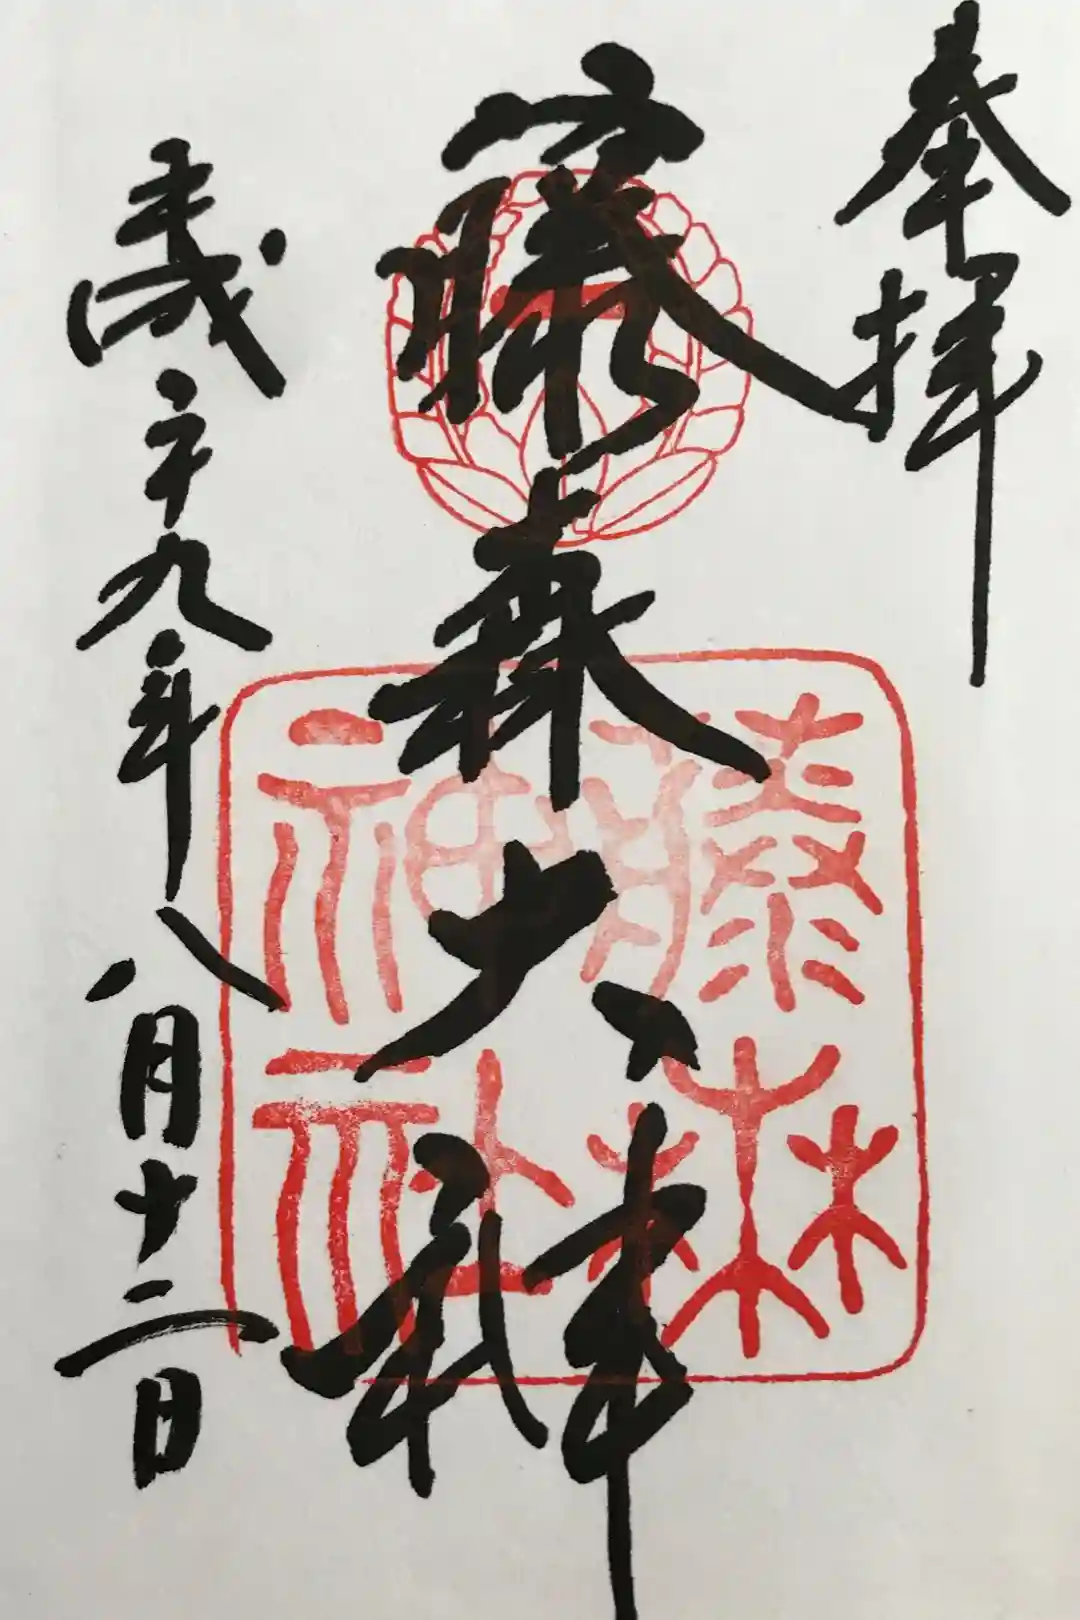 奉拝
藤森大神
藤森
神社
平成二十九年八月十二日